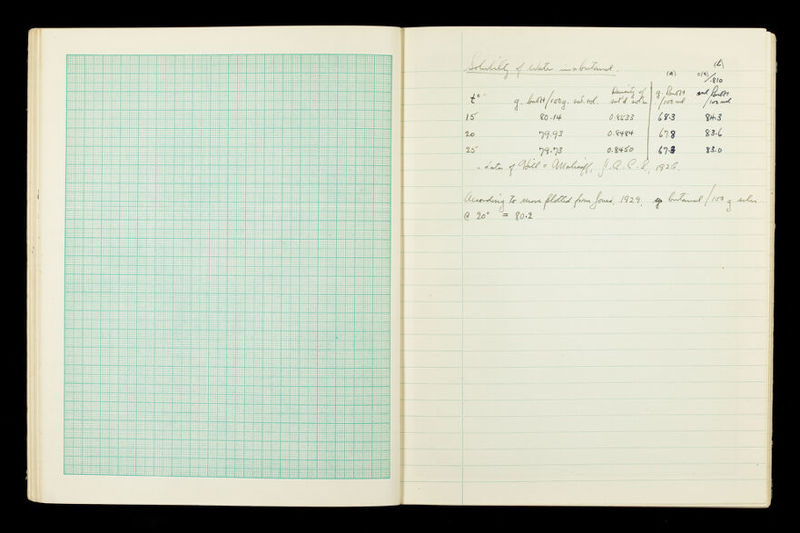 Solubility of Water in n-butanol.
(A) (b)
t° g. BuOH/100g. satd sol. Density of sat'd soln g. BuOH/100 ml ml BuOH/100 ml
15 80.14 0.8533 68.3 84.3
20 79.93 0.8484 67.8 83.6
25 79.73 0.8450 67.3 83.0
- data of Hill & Malisoff, J.A.C.S., 1926.
According to curve plotted from Jones, 1929, g butanol/100 g soln
@ 20° = 80.2